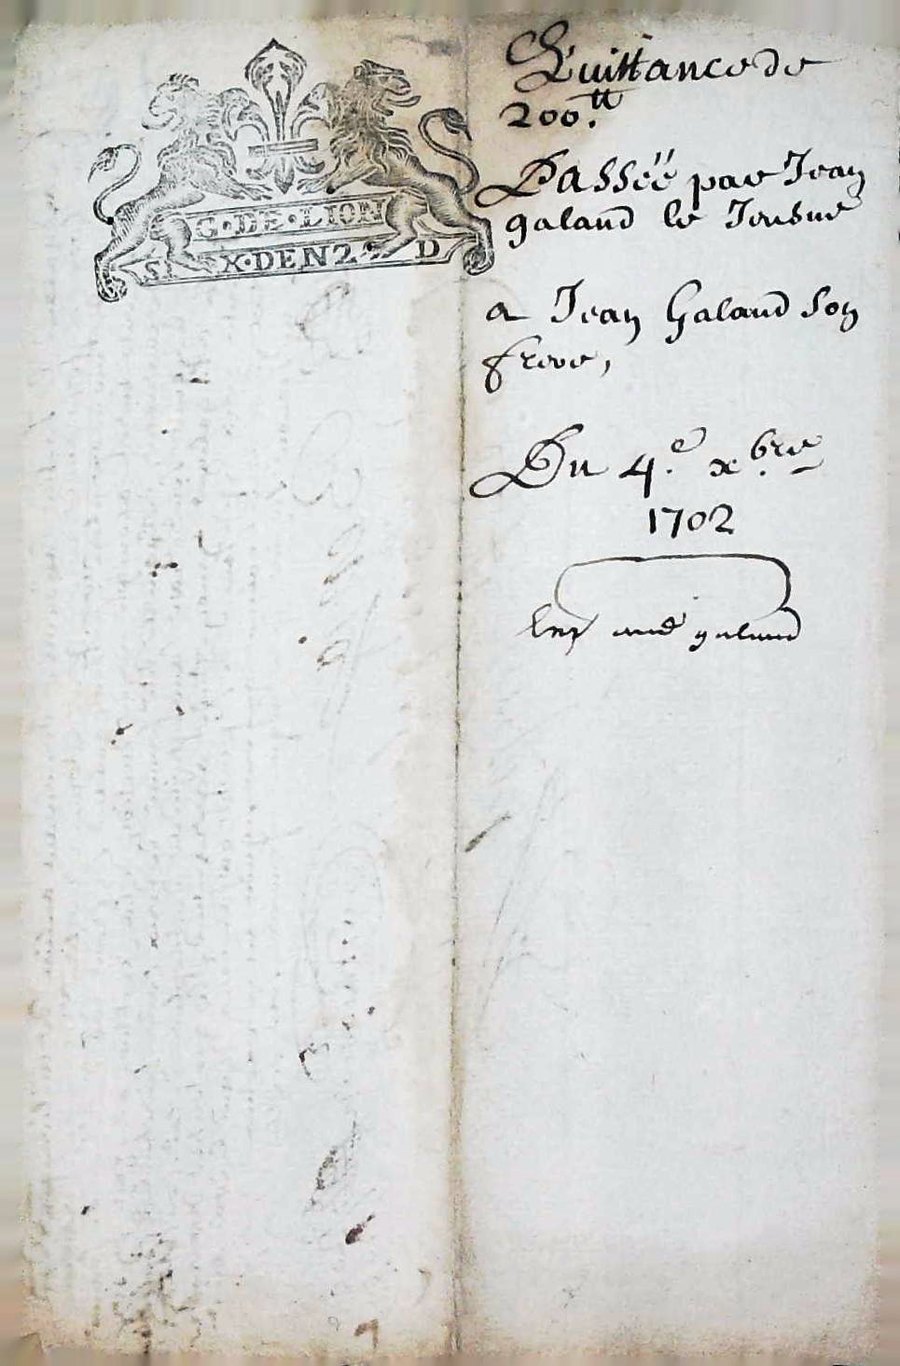 G·DE·LION
SIX·DEN 2 D
Quittance de
200.tt
Passéë par Jean
galand le Jeusne
a Jean Galand son
frere,
Du 4.e xbre
1702
galand